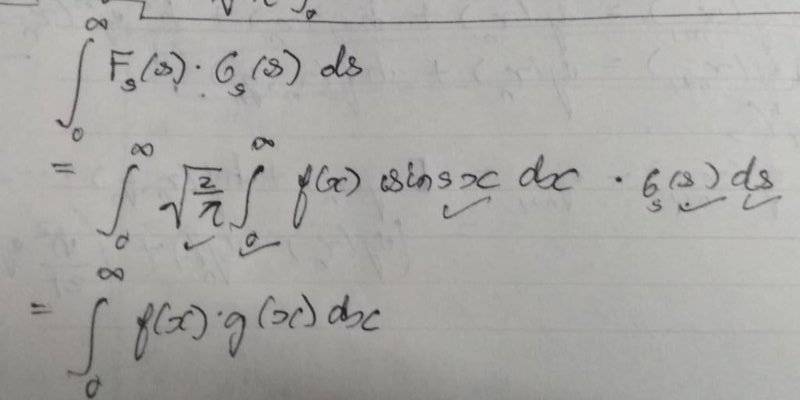 ∫₀^∞ Fₛ(s) · Gₛ(s) ds
= ∫₀^∞ √(2/π) ∫₀^∞ f(x) sin sx dx · Gₛ(s) ds
= ∫₀^∞ f(x) · g(x) dx